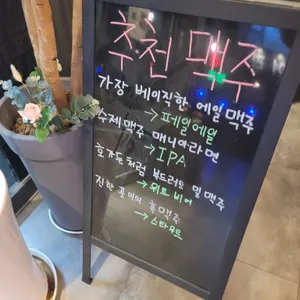 추천 맥주
가장 베이직한 에일 맥주
→ 페일에일
수제맥주 매니아라면
→ IPA
호가든처럼 부드러운 밀 맥주
→ 위트 비어
진한 풍미의 흑맥주
→ 스타우트